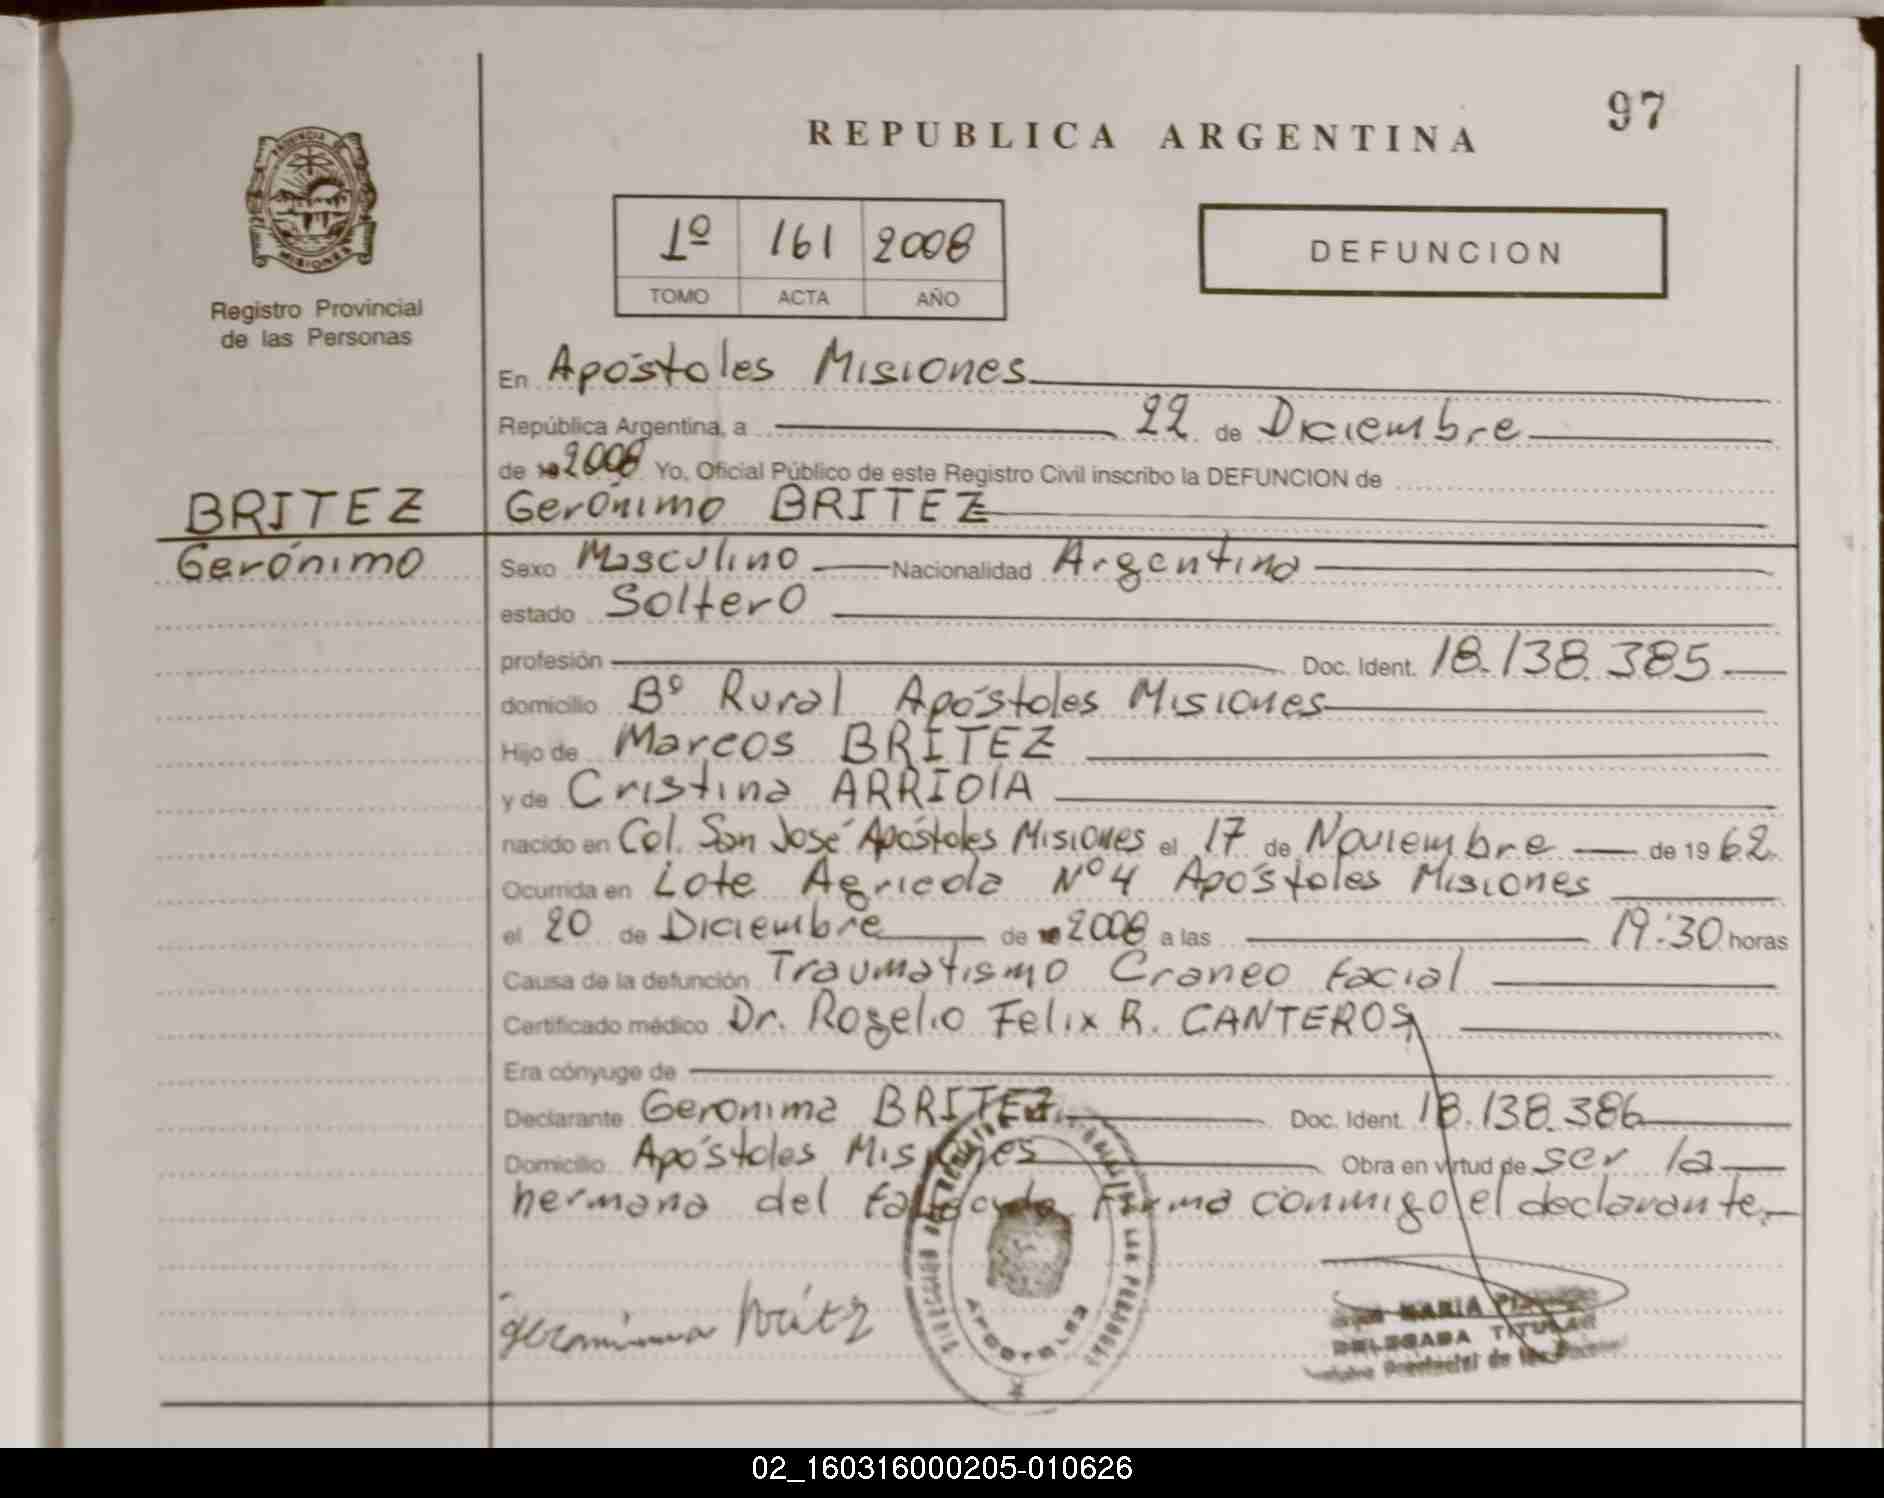 97
REPUBLICA ARGENTINA
PROVINCIA DE
MISIONES
Registro Provincial
de las Personas
1º 161 2008
TOMO ACTA AÑO
DEFUNCION
En Apóstoles Misiones
República Argentina, a 22 de Diciembre
de 2008 Yo, Oficial Público de este Registro Civil inscribo la DEFUNCION de
BRITEZ Gerónimo BRITEZ
Gerónimo Sexo Masculino Nacionalidad Argentina
estado Soltero
profesión Doc. Ident. 18.138.385
domicilio Bº Rural Apóstoles Misiones
Hijo de Marcos BRITEZ
y de Cristina ARRIOlA
nacido en Col. San José Apóstoles Misiones el 17 de Noviembre de 1962
Ocurrida en Lote Agricola Nº4 Apóstoles Misiones
el 20 de Diciembre de 2008 a las 19:30 horas
Causa de la defunción Traumatismo Craneo facial
Certificado médico Dr. Rogelio Felix R. CANTEROS
Era cónyuge de
Declarante Geronima BRITEZ Doc. Ident. 18.138.386
Domicilio Apóstoles Misiones Obra en virtud de ser la
hermana del fallecido Firma conmigo el declarante
geronima britez
APOSTOLES
MARIA
DELEGADA TITULAR
Provincial de las
02_160316000205-010626